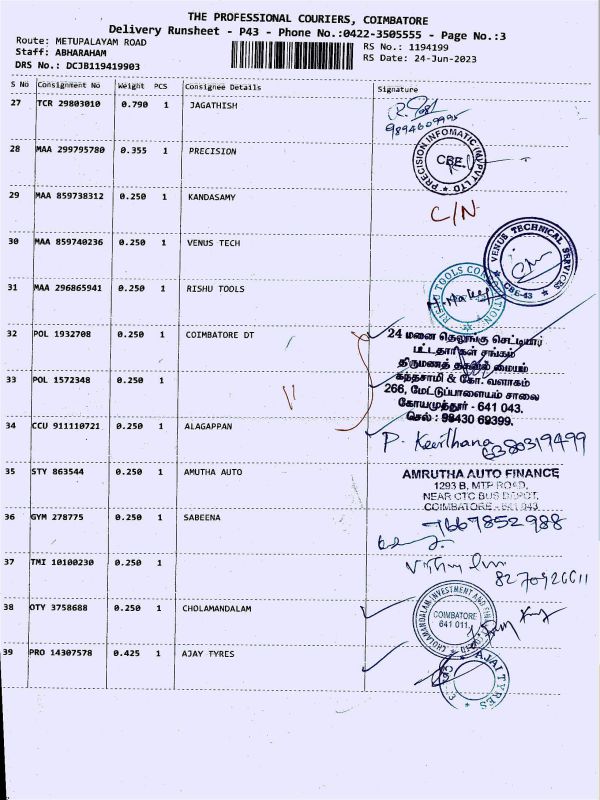 THE PROFESSIONAL COURIERS, COIMBATORE
Delivery Runsheet - P43 - Phone No.:0422-3505555 - Page No.:3
Route: METUPALAYAM ROAD
RS No.: 1194199
Staff: ABHARAHAM
RS Date: 24-Jun-2023
DRS No.: DCJB119419903
S No Consignment No Weight PCS Consignee Details Signature
27 TCR 29803010 0.790 1 JAGATHISH
9894609995
28 MAA 299795780 0.355 1 PRECISION
PRECISION INFOMATIC (M) PVT LTD
CBE
29 MAA 859738312 0.250 1 KANDASAMY
C/N
30 MAA 859740236 0.250 1 VENUS TECH
VENUS TECHNICAL SERVICES
CBE-43
31 MAA 296865941 0.250 1 RISHU TOOLS
RISHU TOOLS CORPORATION
32 POL 1932708 0.250 1 COIMBATORE DT
24 மனை தெலுங்கு செட்டியார்
பட்டதாரிகள் சங்கம்
திருமணத் தகவல் மையம்
33 POL 1572348 0.250 1
கந்தசாமி & கோ. வளாகம்
266, மேட்டுப்பாளையம் சாலை
கோயமுத்தூர் - 641 043.
செல் : 98430 69399.
34 CCU 911110721 0.250 1 ALAGAPPAN
P. Keerthana
6380319499
35 STY 863544 0.250 1 AMUTHA AUTO
AMRUTHA AUTO FINANCE
1293 B, MTP ROAD,
NEAR CTC BUS DEPOT,
COIMBATORE - 641 043
36 GYM 278775 0.250 1 SABEENA
7667852988
37 TMI 10100230 0.250 1
38 OTY 3758688 0.250 1 CHOLAMANDALAM
CHOLAMANDALAM INVESTMENT AND FIN
COIMBATORE
641 011
39 PRO 14307578 0.425 1 AJAY TYRES
AJAI TYRES